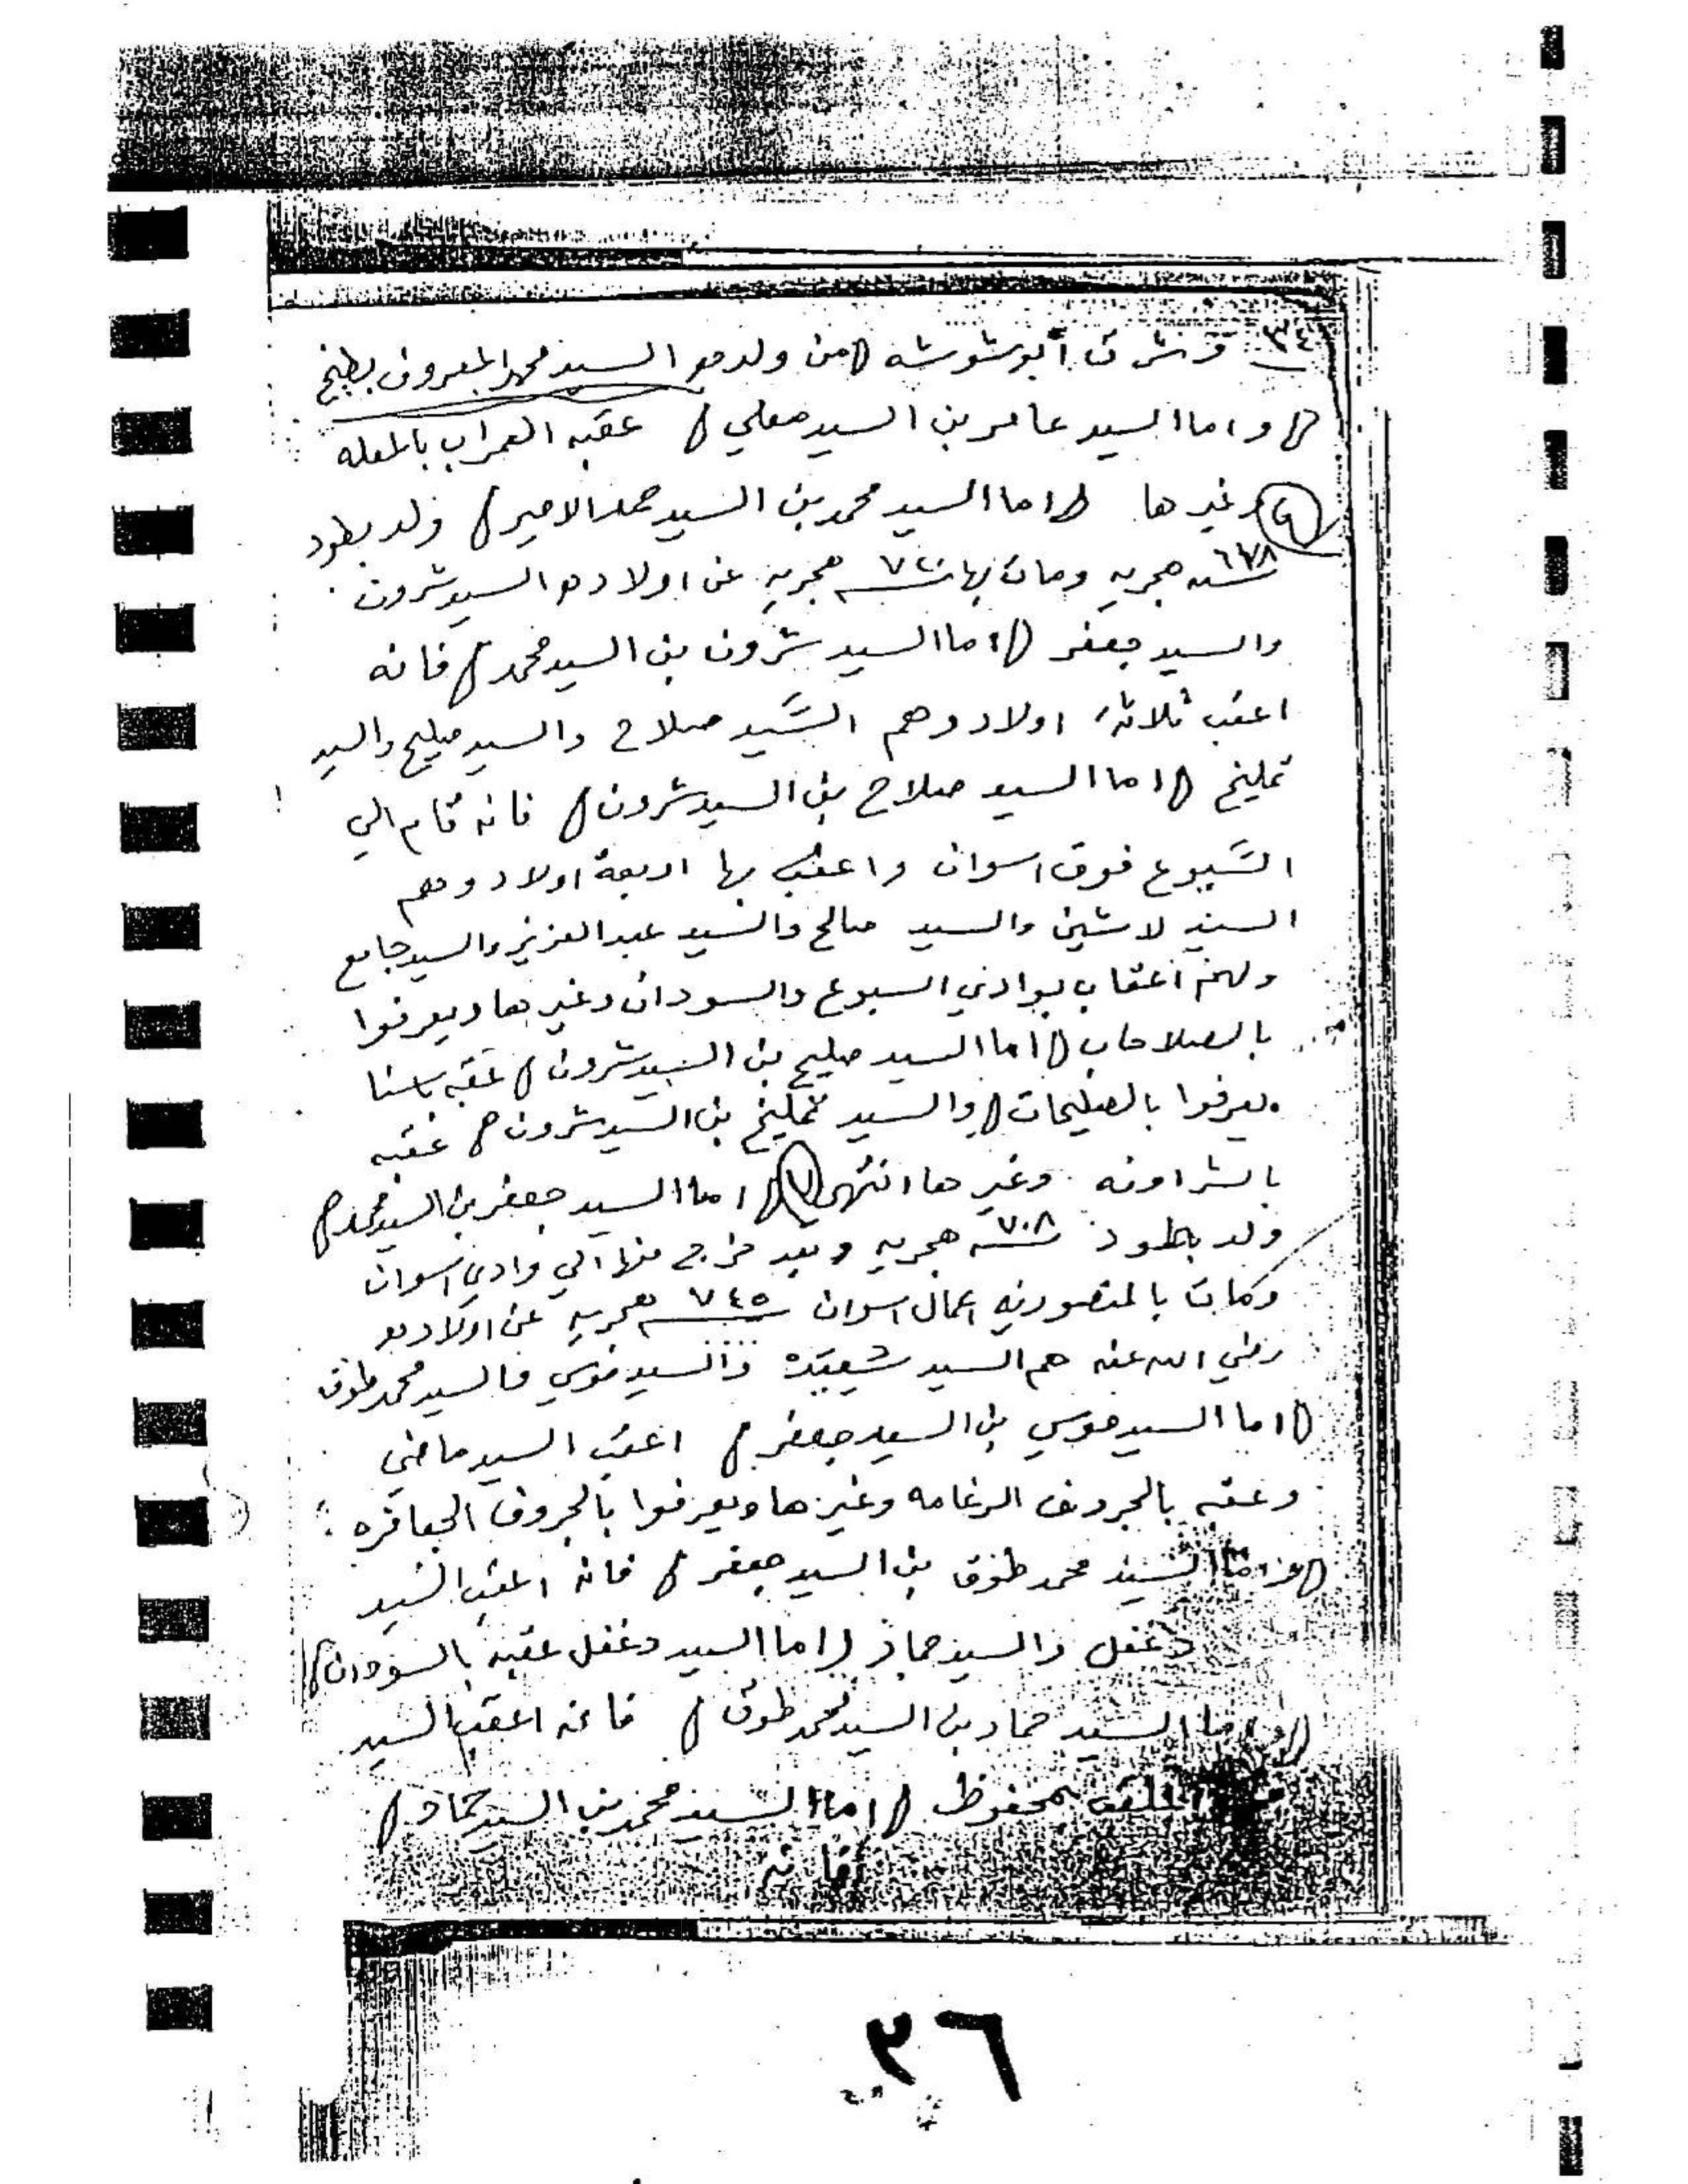 ٣٤ أبو شوشه من ولده السيد محمد المعروف بطبنج
واما السيد عامر بن السيد معلي عقبه العمراب بالمعله
وغيرها اما السيد محمد بن السيد حمد الامير ولد بطود
سنه ٦٧٨ هجريه ومات بها سنه هجريه عن اولاده السيد شرون
والسيد جعفر اما السيد شرون بن السيد محمد فانه
اعقب ثلاثة اولاد وهم السيد صلاح والسيد صليح والسيد
تمليخ اما السيد صلاح بن السيد شرون فانه قام الي
السبوع فوق اسوان واعقب بها اربعة اولاد وهم
السيد لاشين والسيد صالح والسيد عبد العزيز والسيد جامع
ولهم اعقاب بوادي السبوع والسودان وغيرها ويعرفوا
بالصلاحاب اما السيد صليح بن السيد شرون عقبه باسنا
يعرفوا بالصليحات والسيد تمليخ بن السيد شرون عقبه
بالشراونه وغيرها انتهى ٧ اما السيد جعفر بن السيد محمد
ولد بطود سنه ٧٠٨ هجريه وبعد خرج منها الي وادي اسوان
ومات بالمنصوريه اعمال اسوان سنه ٧٤٥ هجريه عن اولاده
رضي الله عنه هم السيد والسيد موسي والسيد محمد طوق
اما السيد موسي بن السيد جعفر اعقب السيد ماضي
وعقبه بالجروف الرغامه وغيرها ويعرفوا بالجروف الجعافره
اما السيد محمد طوق بن السيد جعفر فانه اعقب السيد
دغفل والسيد حماد اما السيد دغفل عقبه بالسودان
اما السيد حماد بن السيد محمد طوق فانه اعقب السيد
الملقب بمحفوظ اما السيد محمد بن السيد حماد
فانه
٣٦